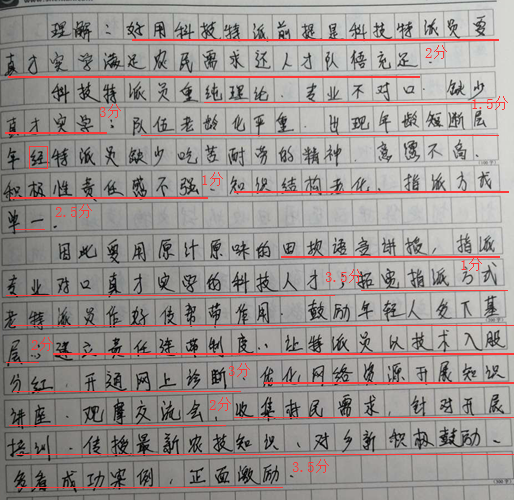 理解：好用科技特派前提是科技特派员要
真才实学满足农民需求还人才队伍充足. 2分
科技特派员重纯理论、专业不对口、缺少
3分 1.5分
真才实学；队伍老龄化严重、出现年龄短断层
年经特派员缺少吃苦耐劳的精神、意愿不高、
积极性责任感不强. 1分 知识结构老化、指派方式
单一. 2.5分
因此要用原汁原味的田坎语言讲授，指派
专业对口真才实学的科技人才，3.5分 拓宽指派方式 1分
老特派员作好传帮带作用、鼓励年轻人多下基
层，3分 建立责任连带制度、让特派员以技术入股
分红、开通网上诊断、3分 优化网络资源开展知识
讲座、观摩交流会、2分 收集村民需求，针对开展
培训、传授最新农技知识、对乡新积极鼓励、
多看成功案例，正面激励. 3.5分